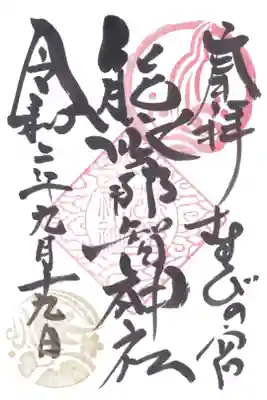 奉拝 むすびの宮
熊野那智神社
令和二年九月十九日